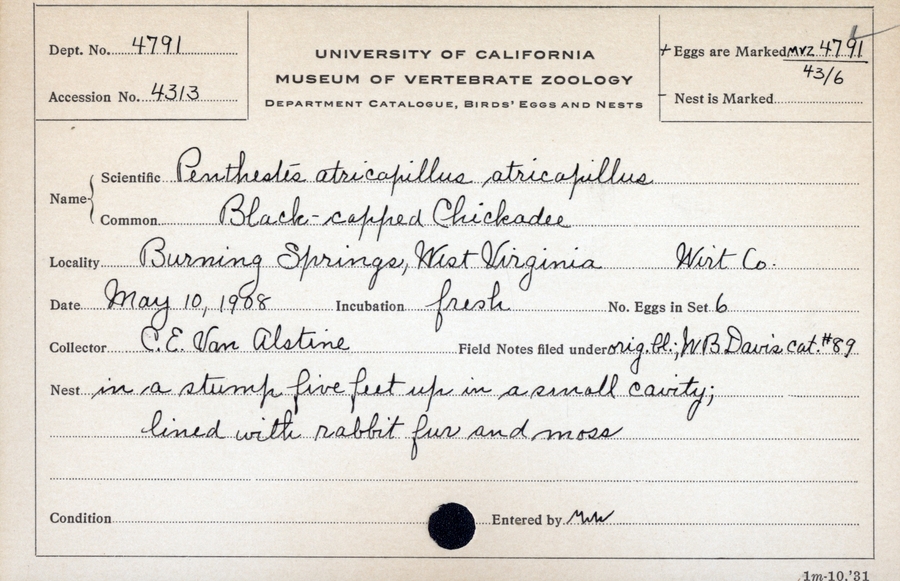 Dept. No. 4791
Accession No. 4313
UNIVERSITY OF CALIFORNIA
MUSEUM OF VERTEBRATE ZOOLOGY
DEPARTMENT CATALOGUE, BIRDS' EGGS AND NESTS
+ Eggs are Marked MVZ 4791
43/6
- Nest is Marked
Name { Scientific Penthestes atricapillus atricapillus
Common Black-capped Chickadee
Locality Burning Springs, West Virginia Wirt Co.
Date May 10, 1908 Incubation fresh No. Eggs in Set 6
Collector C. E. Van Alstine Field Notes filed under orig. bl.; WB Davis cat. #89
Nest in a stump five feet up in a small cavity;
lined with rabbit fur and moss
Condition Entered by
1m-10,'31